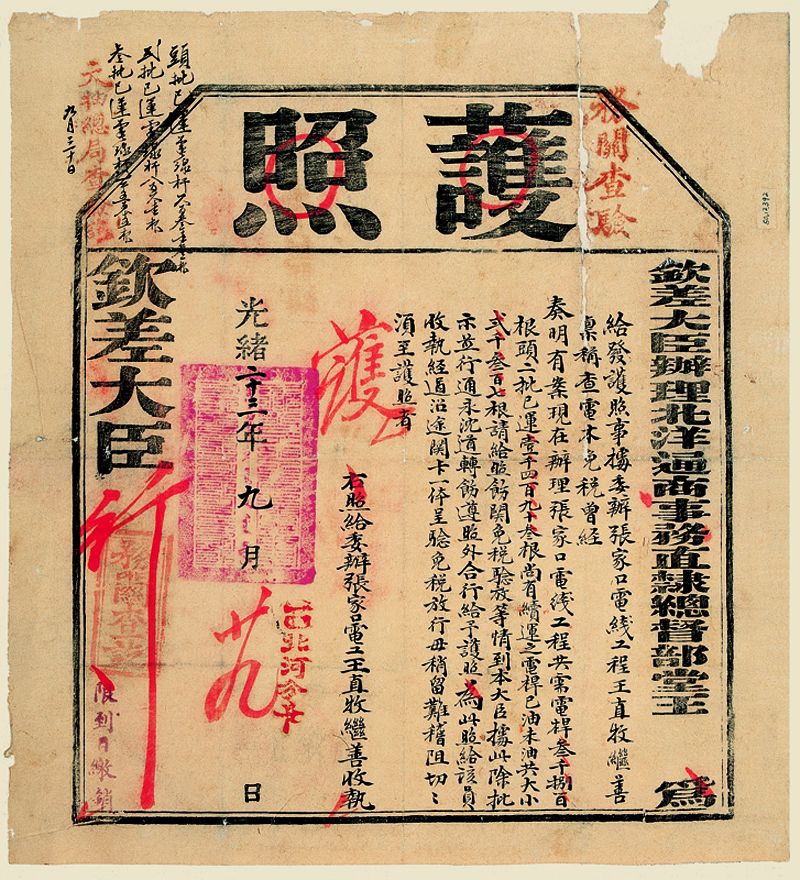 護照
欽差大臣辦理北洋通商事務直隸總督部堂王
為
給發護照事據委辦張家口電线工程王直牧繼善
稟稱查電木免稅曾經
奏明有案現在辦理張家口電线工程共需電桿叁千捌百
根頭二批已運壹千四百九十叁根尚有續運之電桿已油未油共大小
弍千叁百七根請給照飭關免稅驗放等情到本大臣據此除批
示並行通永沈道轉飭遵照外合行給予護照為此照給該員
收執經過沿途關卡一体呈驗免稅放行毋稍留難稽阻切〻
須至護照者
護
右照給委辦張家口電工王直牧繼善收執
光緒二十三年九月
廿九
日
欽差大臣
行
限到日繳銷
務關查驗
務關查
九月三十日